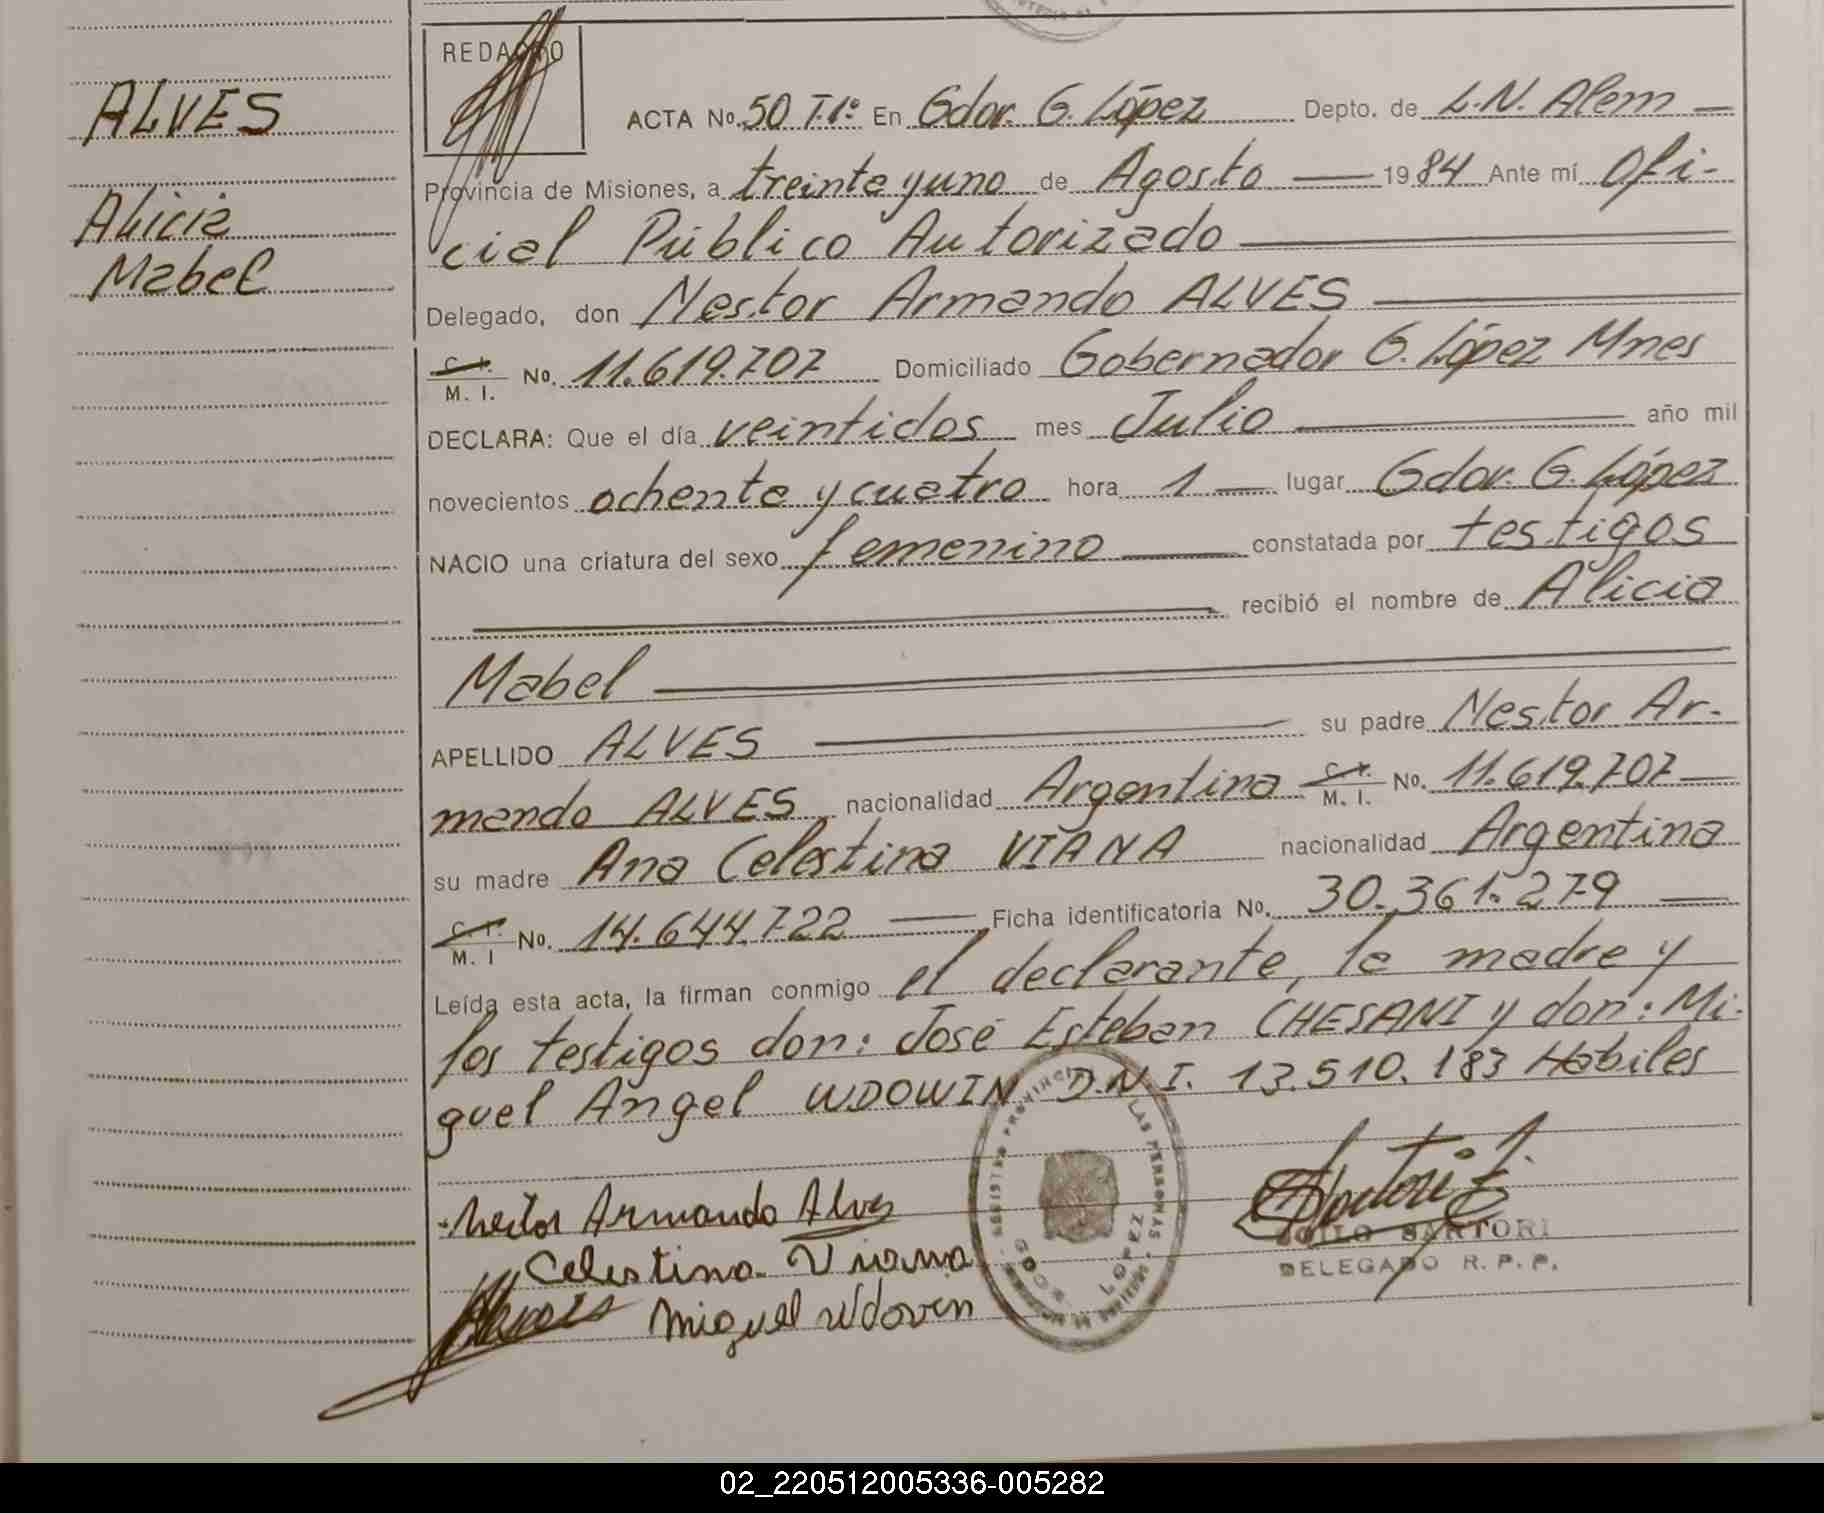 ALVES
Alicia
Mabel
REDACTO
ACTA No. 50 T.1º En Gdor. G. López Depto. de L.N. Alem
Provincia de Misiones, a treinta y uno de Agosto 1984 Ante mí Ofi-
cial Público Autorizado
Delegado, don Nestor Armando ALVES
C. I.
M. I. No. 11.619.707 Domiciliado Gobernador G. López Mnes
DECLARA: Que el día veintidos mes Julio año mil
novecientos ochenta y cuatro hora 1 lugar Gdor. G. López
NACIO una criatura del sexo femenino constatada por testigos
recibió el nombre de Alicia
Mabel
APELLIDO ALVES su padre Nestor Ar-
mando ALVES nacionalidad Argentina C. I. M. I. No. 11.619.707
su madre Ana Celestina VIANA nacionalidad Argentina
C. I.
M. I No. 14.644.722 Ficha identificatoria No. 30.361.279
Leída esta acta, la firman conmigo el declarante, la madre y
los testigos don: José Esteban CHESANI y don: Mi-
guel Angel WDOWIN D.N.I. 13.510.183 Habiles
Nestor Armando Alves
Celestina Viana
Miguel Wdovin
REGISTRO PROVINCIAL LAS PERSONAS
GDOR. LOPEZ
SARTORI
DELEGADO R. P. P.
02_220512005336-005282